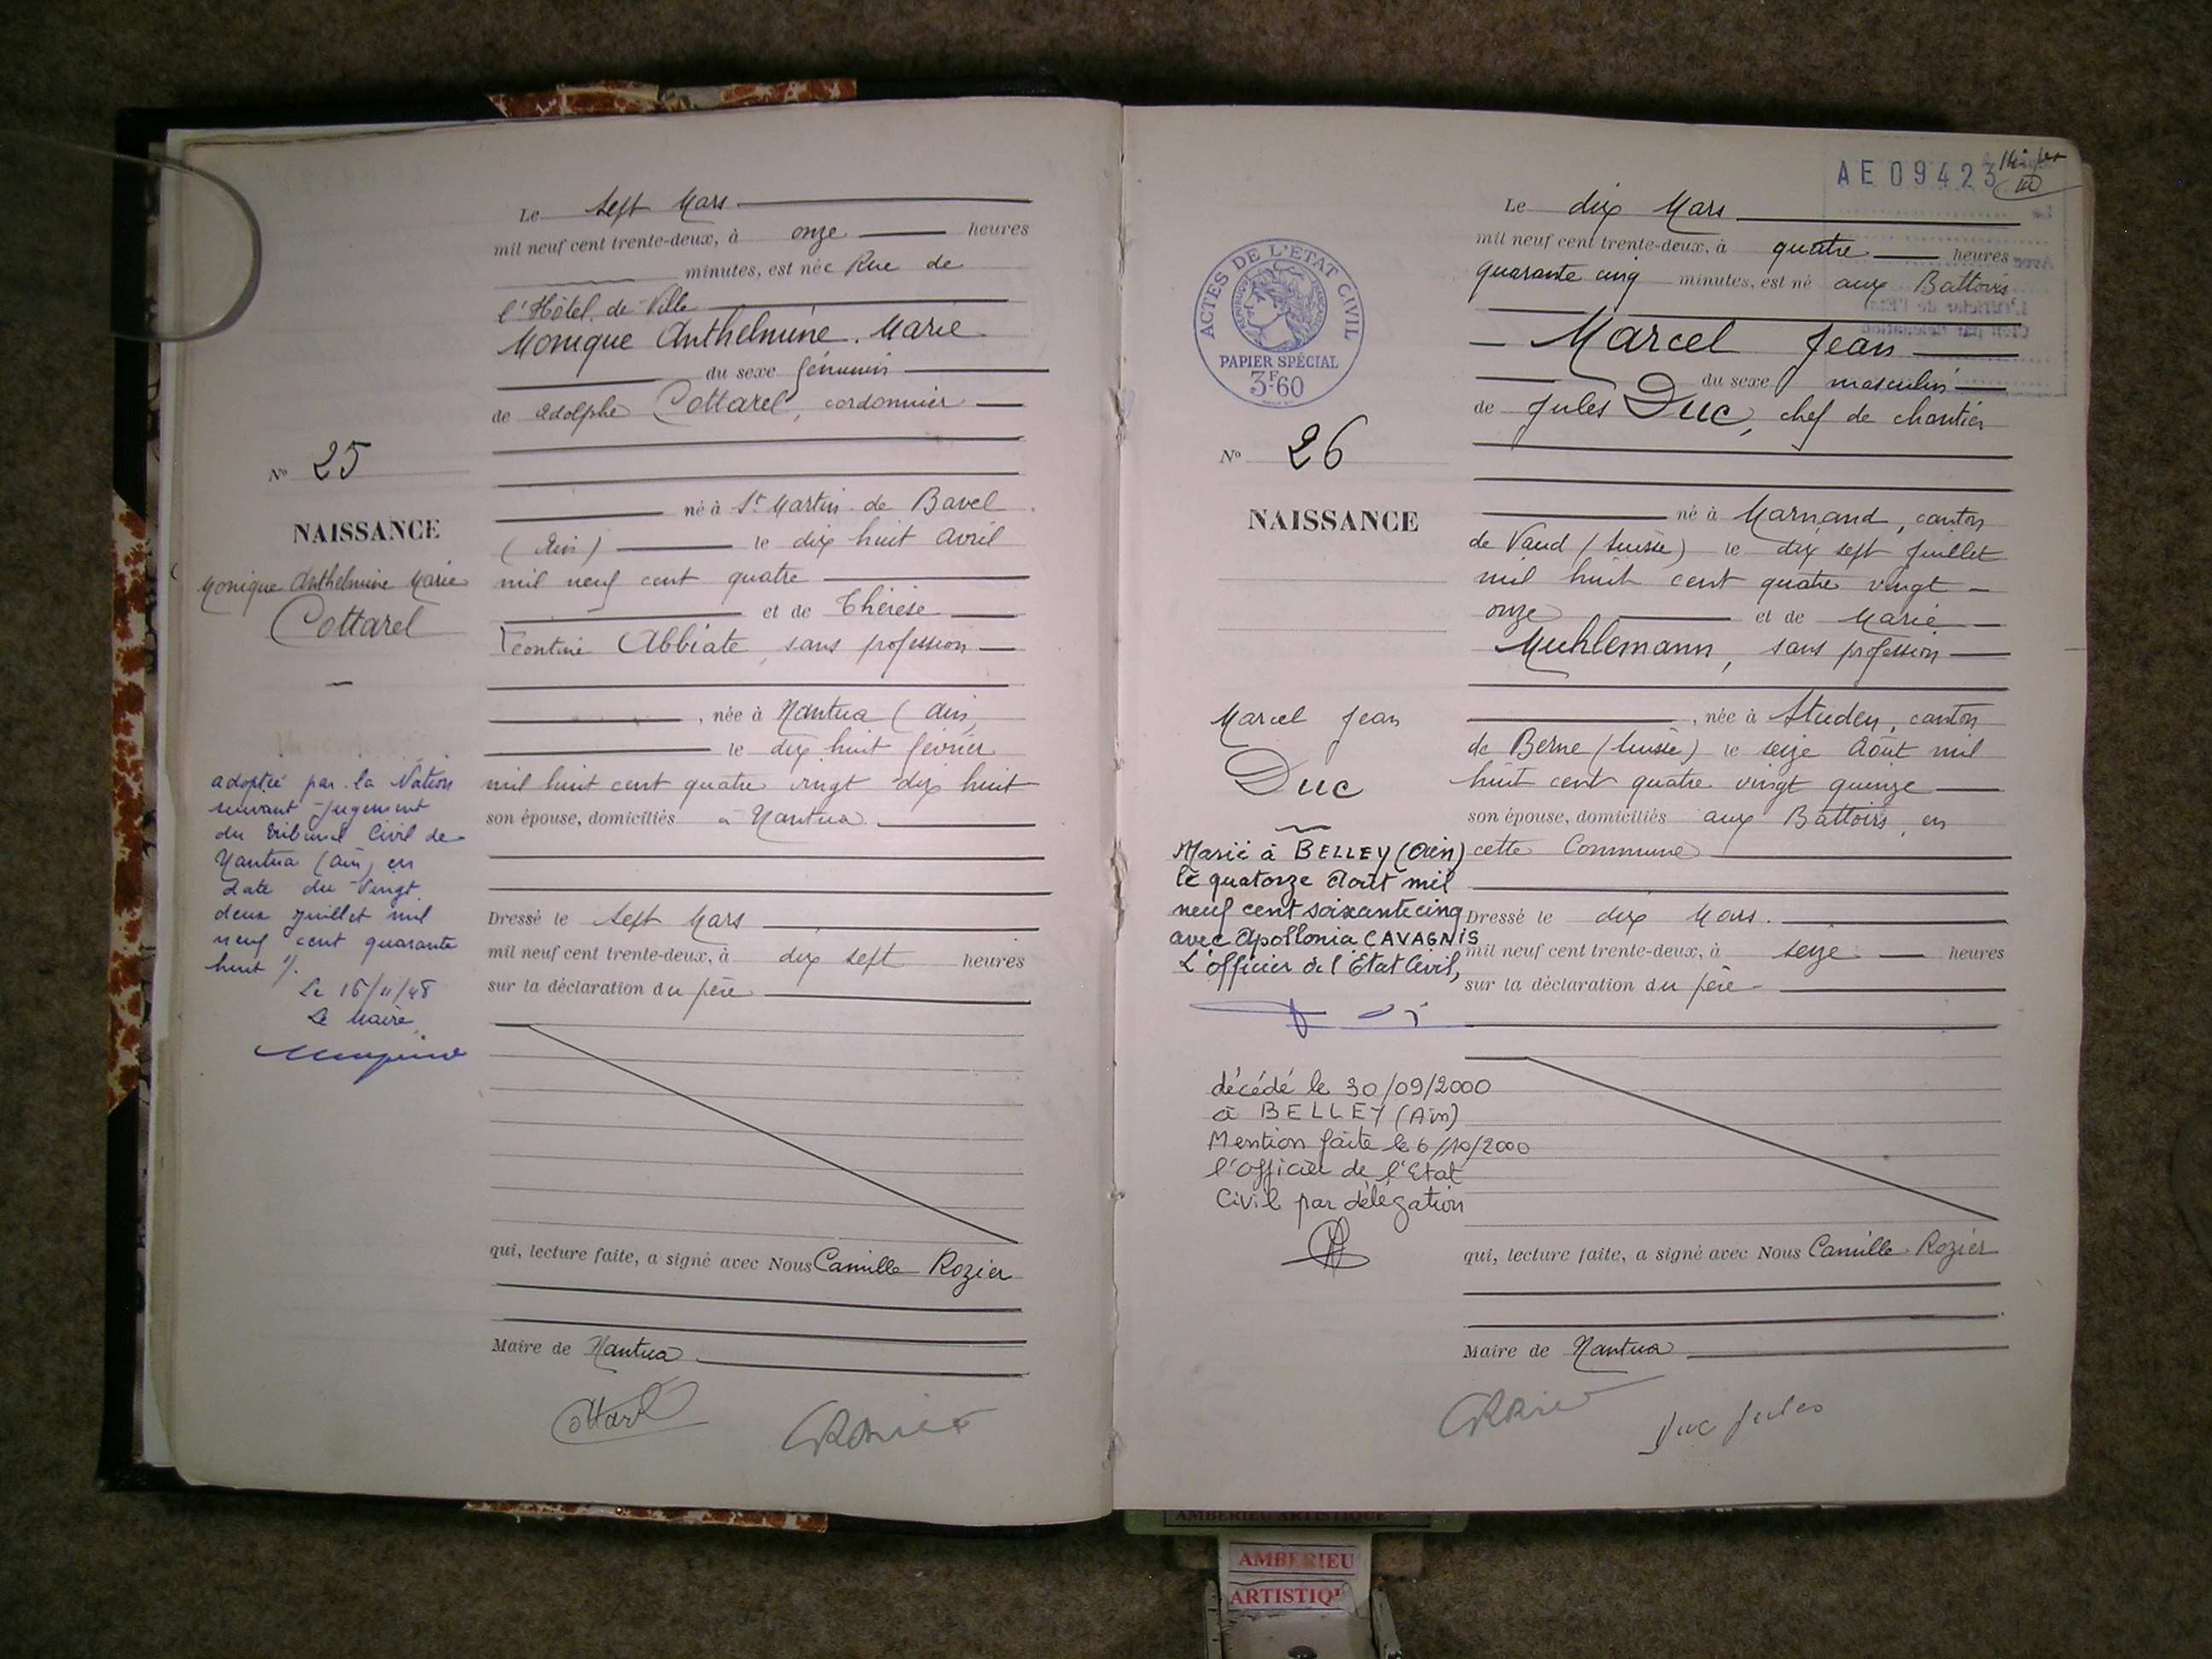 Le sept Mars
mil neuf cent trente-deux, à onze heures
minutes, est née Rue de
l'Hôtel de Ville
Monique Anthelmine Marie
du sexe féminin
de Adolphe Cottarel, cordonnier
né à St Martin de Bavel
(Ain) le dix huit avril
mil neuf cent quatre
et de Thérèse
Léontine Abbiate, sans profession
, née à Nantua (Ain)
le dix huit février
mil huit cent quatre vingt dix huit
son épouse, domiciliés à Nantua
Dressé le sept Mars
mil neuf cent trente-deux, à dix sept heures
sur la déclaration du père
qui, lecture faite, a signé avec Nous Camille Rozier
Maire de Nantua
Cottarel
CRozier
N° 25
NAISSANCE
Monique Anthelmine Marie
Cottarel
adoptée par la Nation
suivant jugement
du tribunal Civil de
Nantua (Ain) en
date du Vingt
deux juillet mil
neuf cent quarante
huit ./.
Le 16/11/48
Le Maire
AE 09423
ACTES DE L'ETAT CIVIL
REPUBLIQUE FRANÇAISE
PAPIER SPÉCIAL
3F60
Le dix Mars
mil neuf cent trente-deux, à quatre heures
quarante cinq minutes, est né aux Battoirs
Marcel Jean
du sexe masculin
de Jules Duc, chef de chantier
né à Marnand, canton
de Vaud (Suisse) le dix sept juillet
mil huit cent quatre vingt
onze et de Marie
Muhlemann, sans profession
, née à Studen, canton
de Berne (Suisse) le seize Août mil
huit cent quatre vingt quinze
son épouse, domiciliés aux Battoirs, en
cette Commune
Dressé le dix Mars
mil neuf cent trente-deux, à seize heures
sur la déclaration du père
qui, lecture faite, a signé avec Nous Camille Rozier
Maire de Nantua
CRozier
Duc Jules
N° 26
NAISSANCE
Marcel Jean
Duc
Marié à BELLEY (Ain)
le quatorze Août mil
neuf cent soixante cinq
avec Apollonia CAVAGNIS
L'officier de l'Etat Civil,
décédé le 30/09/2000
à BELLEY (Ain)
Mention faite le 6/10/2000
l'officier de l'Etat
Civil par délégation
AMBERIEU ARTISTIQUE
AMBERIEU
ARTISTIQ